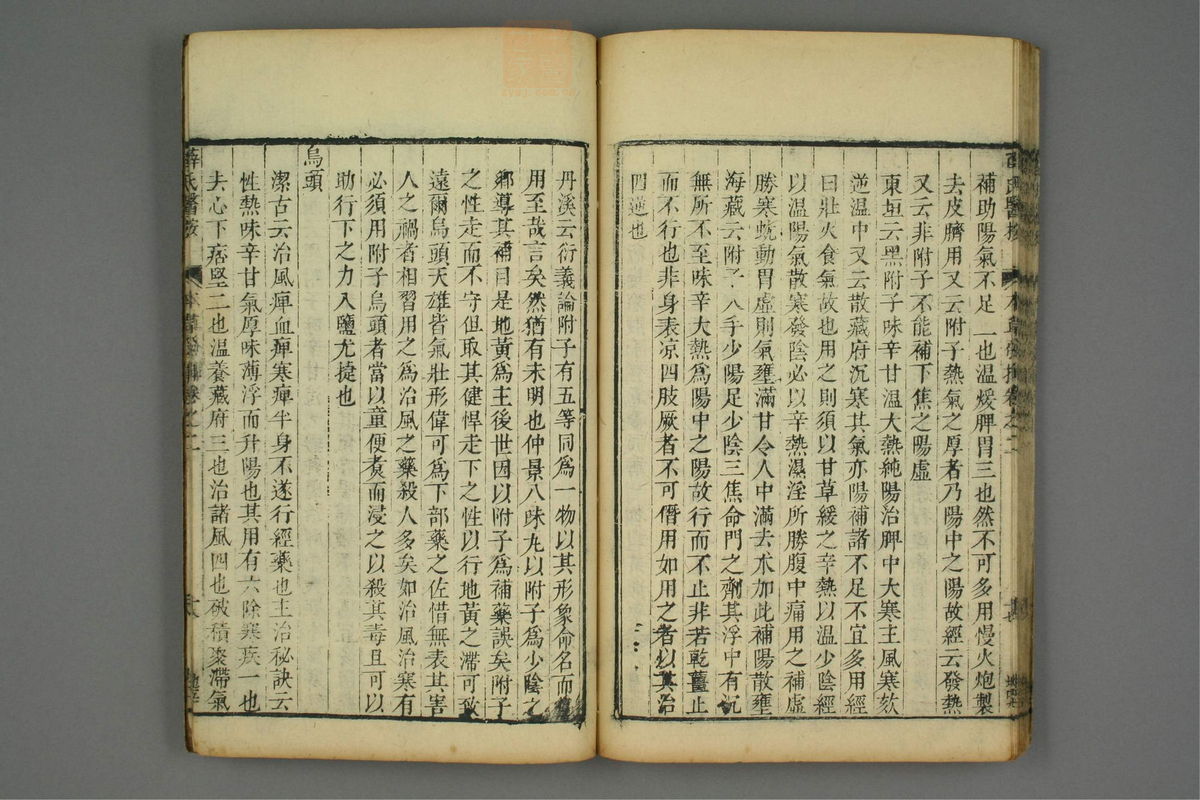 補助陽氣不足一也温煖脾胃三也然不可多用慢火炮製
去皮臍用又云附子熱氣之厚者乃陽中之陽故經云發熱
又云非附子不能補下焦之陽虛
東垣云黑附子味辛甘温大熱純陽治脾中大寒主風寒欬
逆温中又云散藏府沉寒其氣亦陽補諸不足不宜多用經
曰壯火食氣故也用之則須以甘草緩之辛熱以温少陰經
以温陽氣散寒發陰必以辛熱濕淫所勝腹中痛用之補虛
勝寒蚘動胃虛則氣壅滿甘令人中滿去术加此補陽散壅
海藏云附子入手少陽足少陰三焦命門之劑其浮中有沉
無所不至味辛大熱爲陽中之陽故行而不止非若乾薑止
而不行也非身表凉四肢厥者不可僭用如用之者以其治
四逆也
丹溪云衍義論附子有五等同爲一物以其形象命名而爲
用至哉言矣然猶有未明也仲景八味丸以附子爲少陰之
鄉導其補自是地黃爲主後世因以附子爲補藥誤矣附子
之性走而不守但取其健悍走下之性以行地黃之滯可致
遠爾烏頭天雄皆氣壯形偉可爲下部藥之佐惜無表其害
人之禍者相習用之爲治風之藥殺人多矣如治風治寒有
必須用附子烏頭者當以童便煑而浸之以殺其毒且可以
助行下之力入鹽尤捷也
烏頭
潔古云治風痺血痺寒痺半身不遂行經藥也主治秘訣云
性熱味辛甘氣厚味薄浮而升陽也其用有六除寒疾一也
去心下痞堅二也温養藏府三也治諸風四也破積聚滯氣
薛氏醫按 本草發揮卷之二